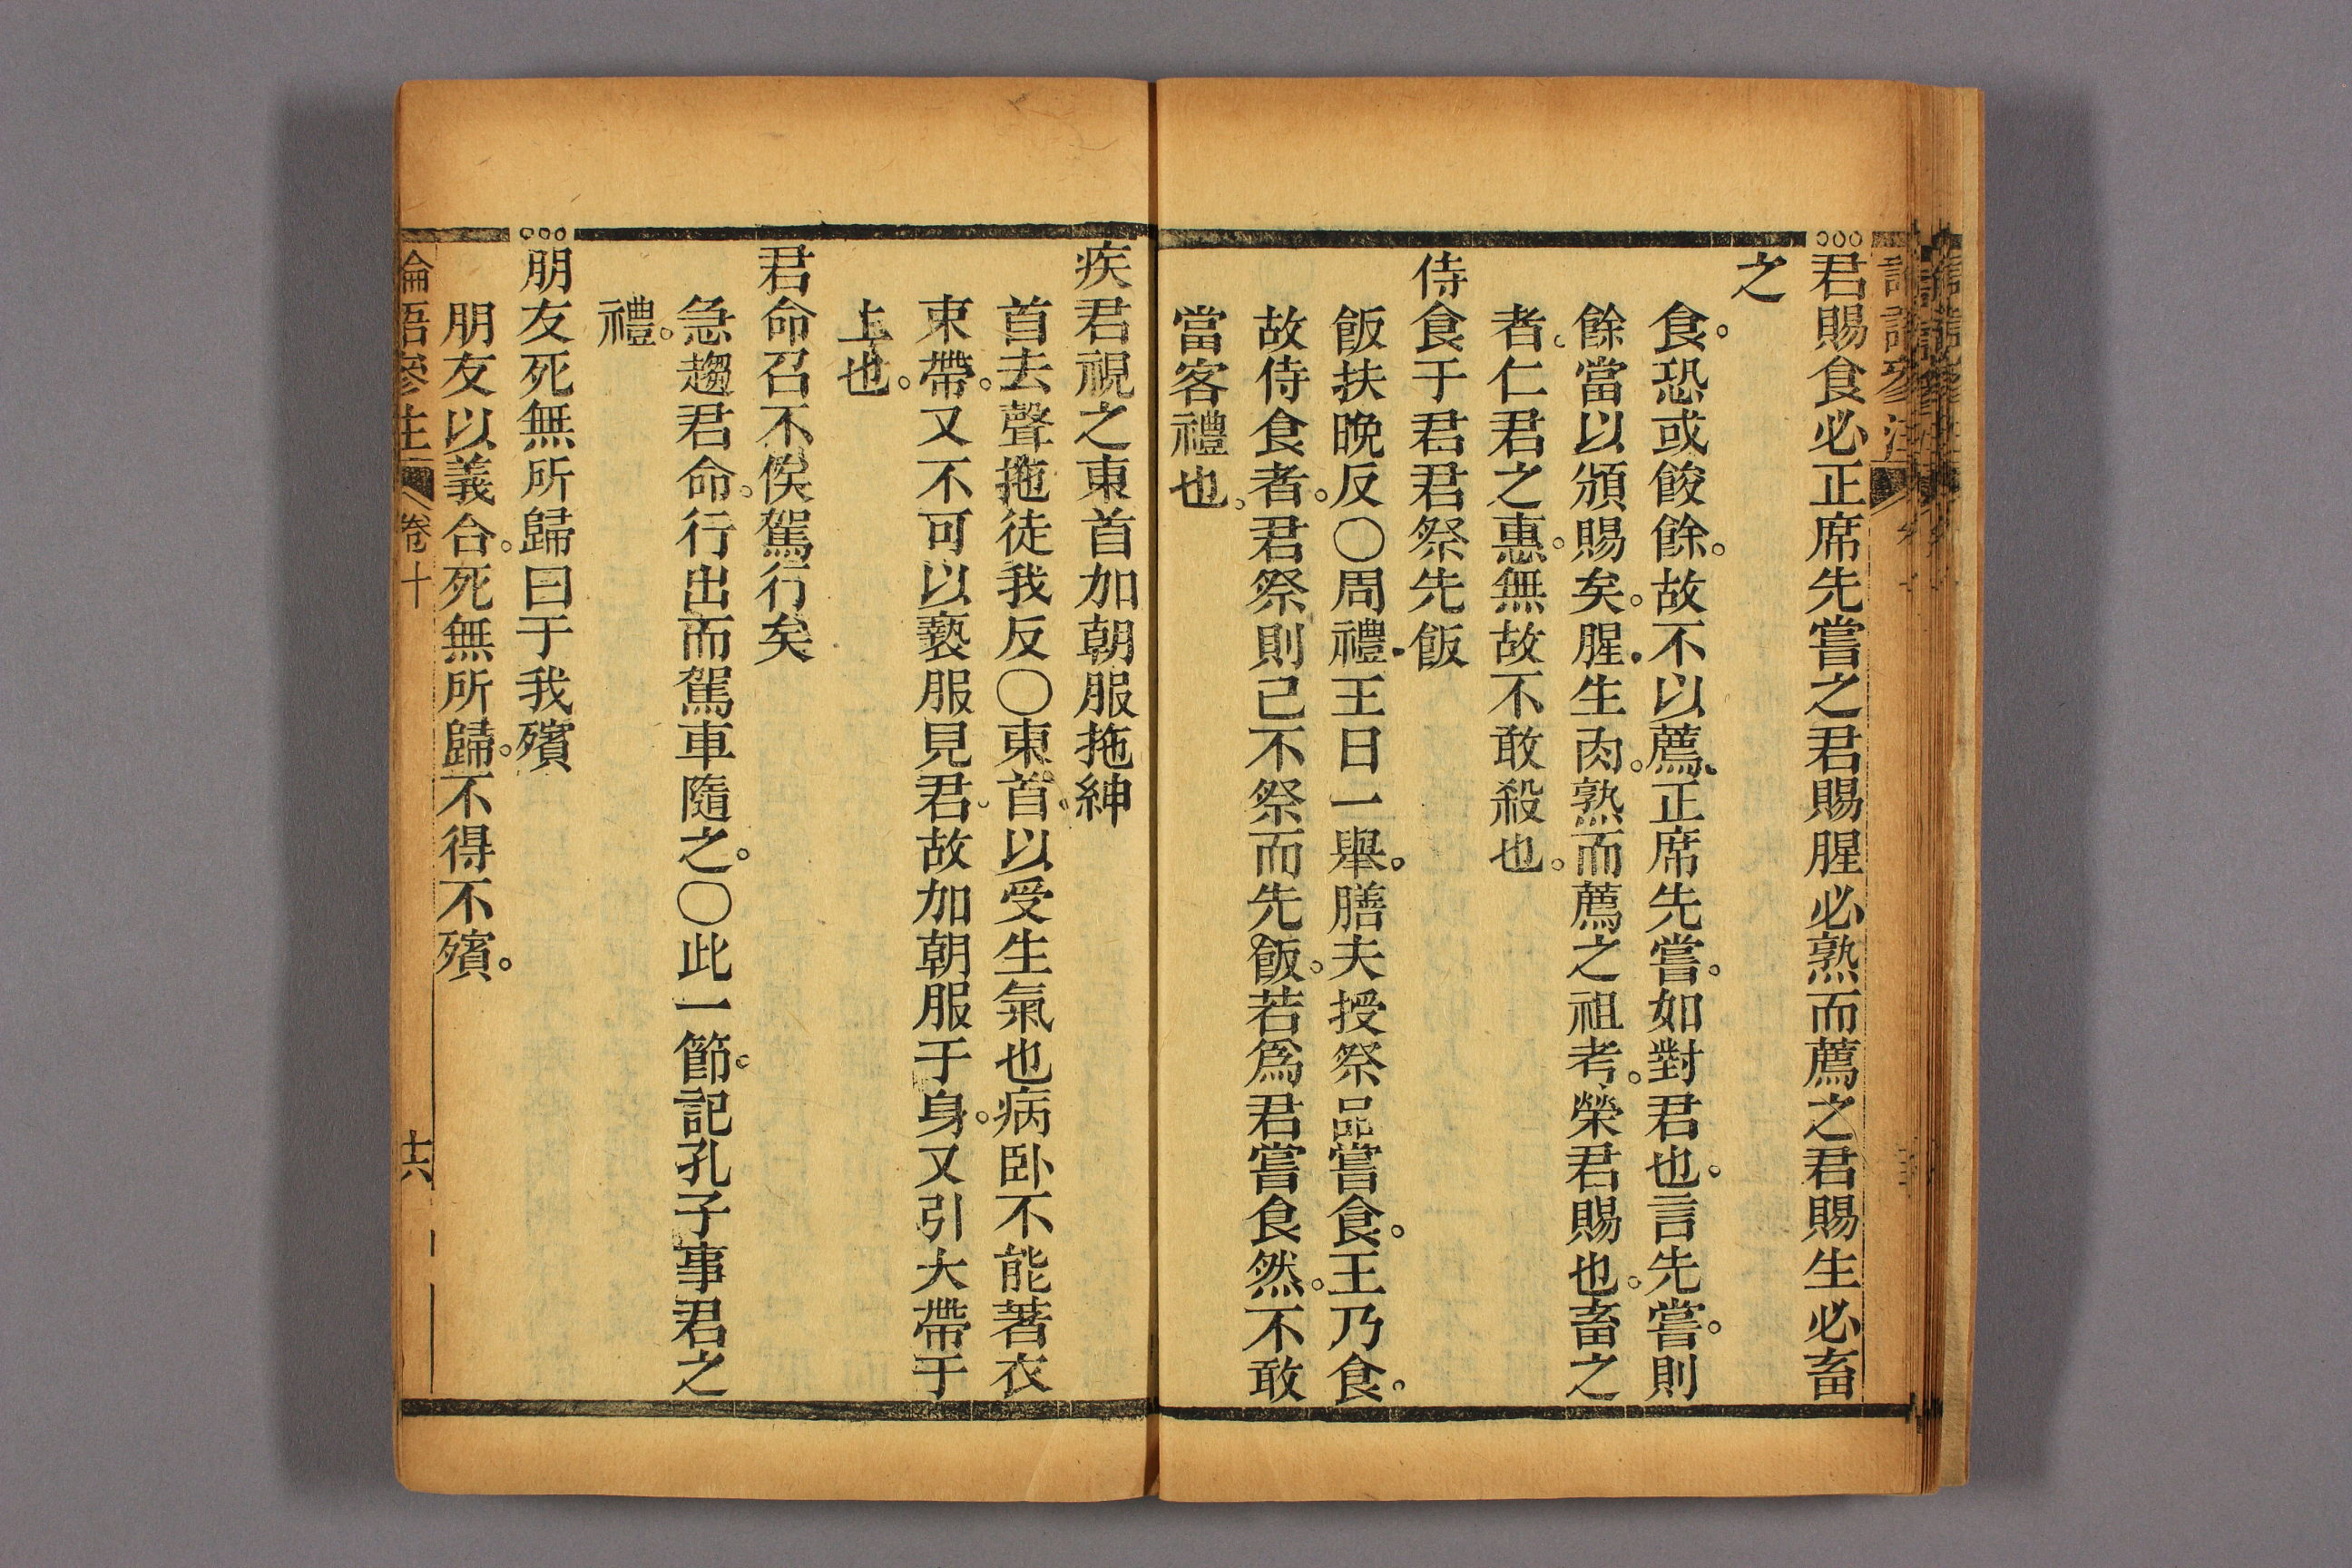 君賜食必正席先嘗之君賜腥必熟而薦之君賜生必畜
之
食。恐或餕餘。故不以薦。正席先嘗。如對君也。言先嘗。則
餘當以頒賜矣。腥。生肉。熟而薦之祖考。榮君賜也。畜之
者。仁君之惠。無故不敢殺也。
侍食于君君祭先飯
飯扶晚反〇周禮。王日一舉。膳夫授祭品嘗食。王乃食。
故侍食者。君祭則己不祭而先飯。若爲君嘗食然。不敢
當客禮也。
疾君視之東首加朝服拖紳
首去聲拖徒我反〇東首。以受生氣也病卧不能著衣
束帶。又不可以褻服見君。故加朝服于身。又引大帶于
上也。
君命召不俟駕行矣
急趨君命。行出而駕車隨之。〇此一節。記孔子事君之
禮。
朋友死無所歸曰于我殯
朋友以義合。死無所歸。不得不殯。
論語參注 卷十 十六